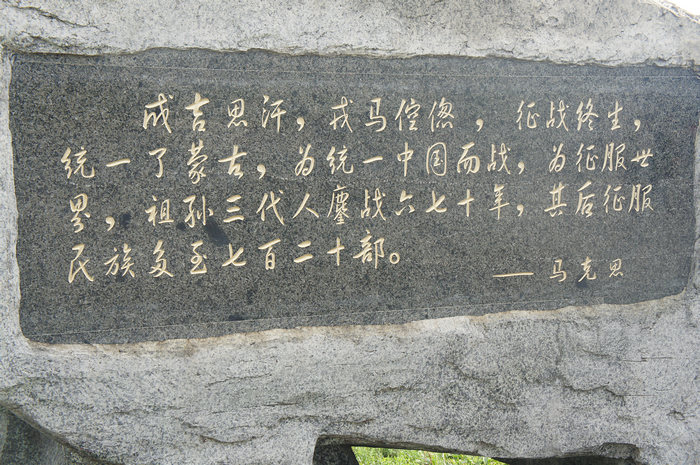 成吉思汗，戎马倥偬，征战终生，
统一了蒙古，为统一中国而战，为征服世
界，祖孙三代人鏖战六七十年，其后征服
民族多至七百二十部。
——马克思